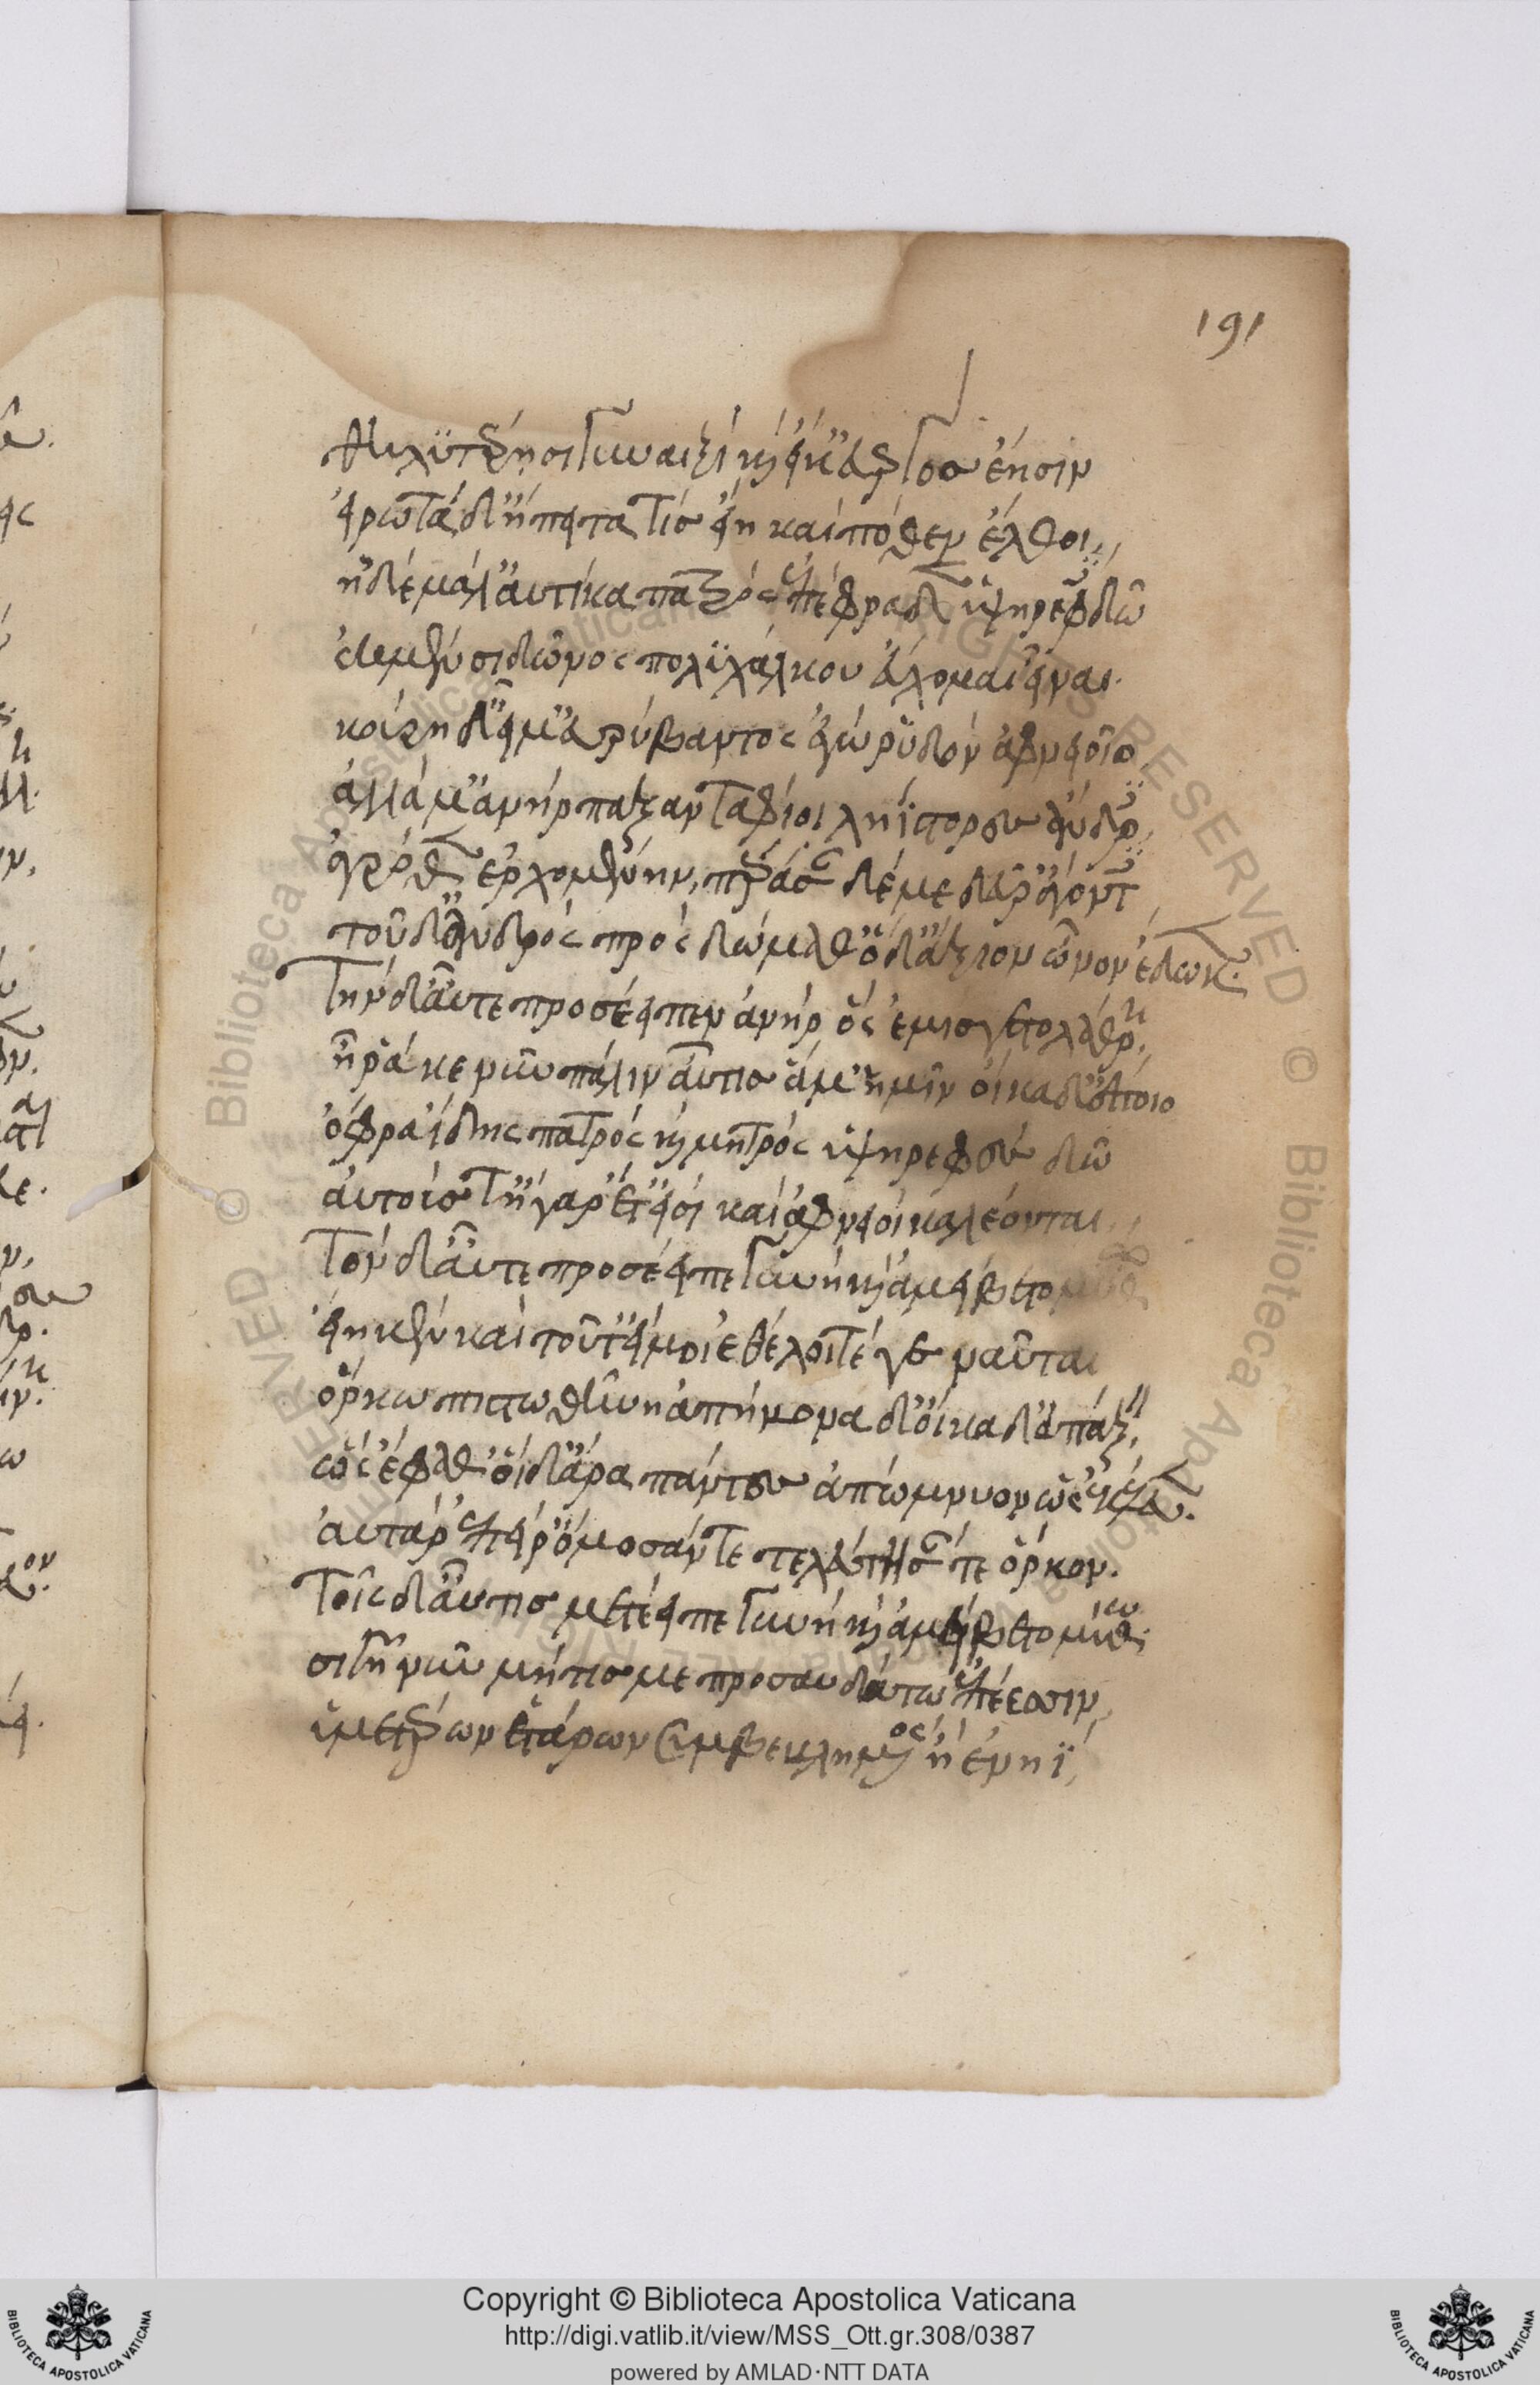 191
θηλυτέρησι γυναιξὶ καὶ ἥ κ' εὐεργὸς ἔησιν
εἰρώτα δ' ἤπειτα τίς εἴη καὶ πόθεν ἔλθοι,
ἡ δὲ μάλ' αὐτίκα πατρὸς ἐπέφραδεν ὑψηρεφὲς δῶ
ἐκ μὲν σιδῶνος πολυχάλκου εὔχομαι εἶναι.
κούρη δ' εἴμ' ἀρύβαντος ἐγὼ ῥυδὸν ἀφνειοῖο
ἀλλά μ' ἀνήρπαξαν τάφιοι ληΐστορες ἄνδρες
ἀγρόθεν ἐρχομένην, πέρασαν δέ με δεῦρ' ἀγαγόντες
τοῦδ' ἀνδρὸς πρὸς δώμαθ' ὁ δ' ἄξιον ὦνον ἔδωκεν.
Τὴν δ' αὖτε προσέειπεν ἀνὴρ ὃς ἐμίσγετο λάθρη,
ἦ ῥά κε νῦν πάλιν αὖτις ἅμ' ἡμῖν οἴκαδ' ἕποιο
ὄφρα ἴδης πατρὸς καὶ μητρὸς ὑψηρεφὲς δῶ
αὐτούς τ' ἦ γὰρ ἔτ' εἰσὶ καὶ ἀφνειοὶ καλέονται,
Τὸν δ' αὖτε προσέειπε γυνὴ καὶ ἀμείβετο μύθω
εἴη κεν καὶ τοῦτ' εἴ μοι ἐθέλοιτέ γε ναῦται
ὅρκω πιστωθῆναι ἀπήμονά μ' οἴκαδ' ἀπάξειν,
ὣς ἔφαθ' οἱ δ' ἄρα πάντες ἀπώμνυον ὡς ἐκέλευεν.
αὐτὰρ ἐπεί ῥ' ὄμοσάν τε τελεύτησάν τε ὅρκον.
Τοῖς δ' αὖτις μετέειπε γυνὴ καὶ ἀμείβετο μύθω.
σιγῆ νῦν μή τίς με προσαυδάτω ἐπέεσσιν,
ὑμετέρων ἑτάρων ξυμβλήμενος ἢ ἐν
Copyright © Biblioteca Apostolica Vaticana
http://digi.vatlib.it/view/MSS_Ott.gr.308/0387
powered by AMLAD·NTT DATA
BIBLIOTECA APOSTOLICA VATICANA
BIBLIOTECA APOSTOLICA VATICANA